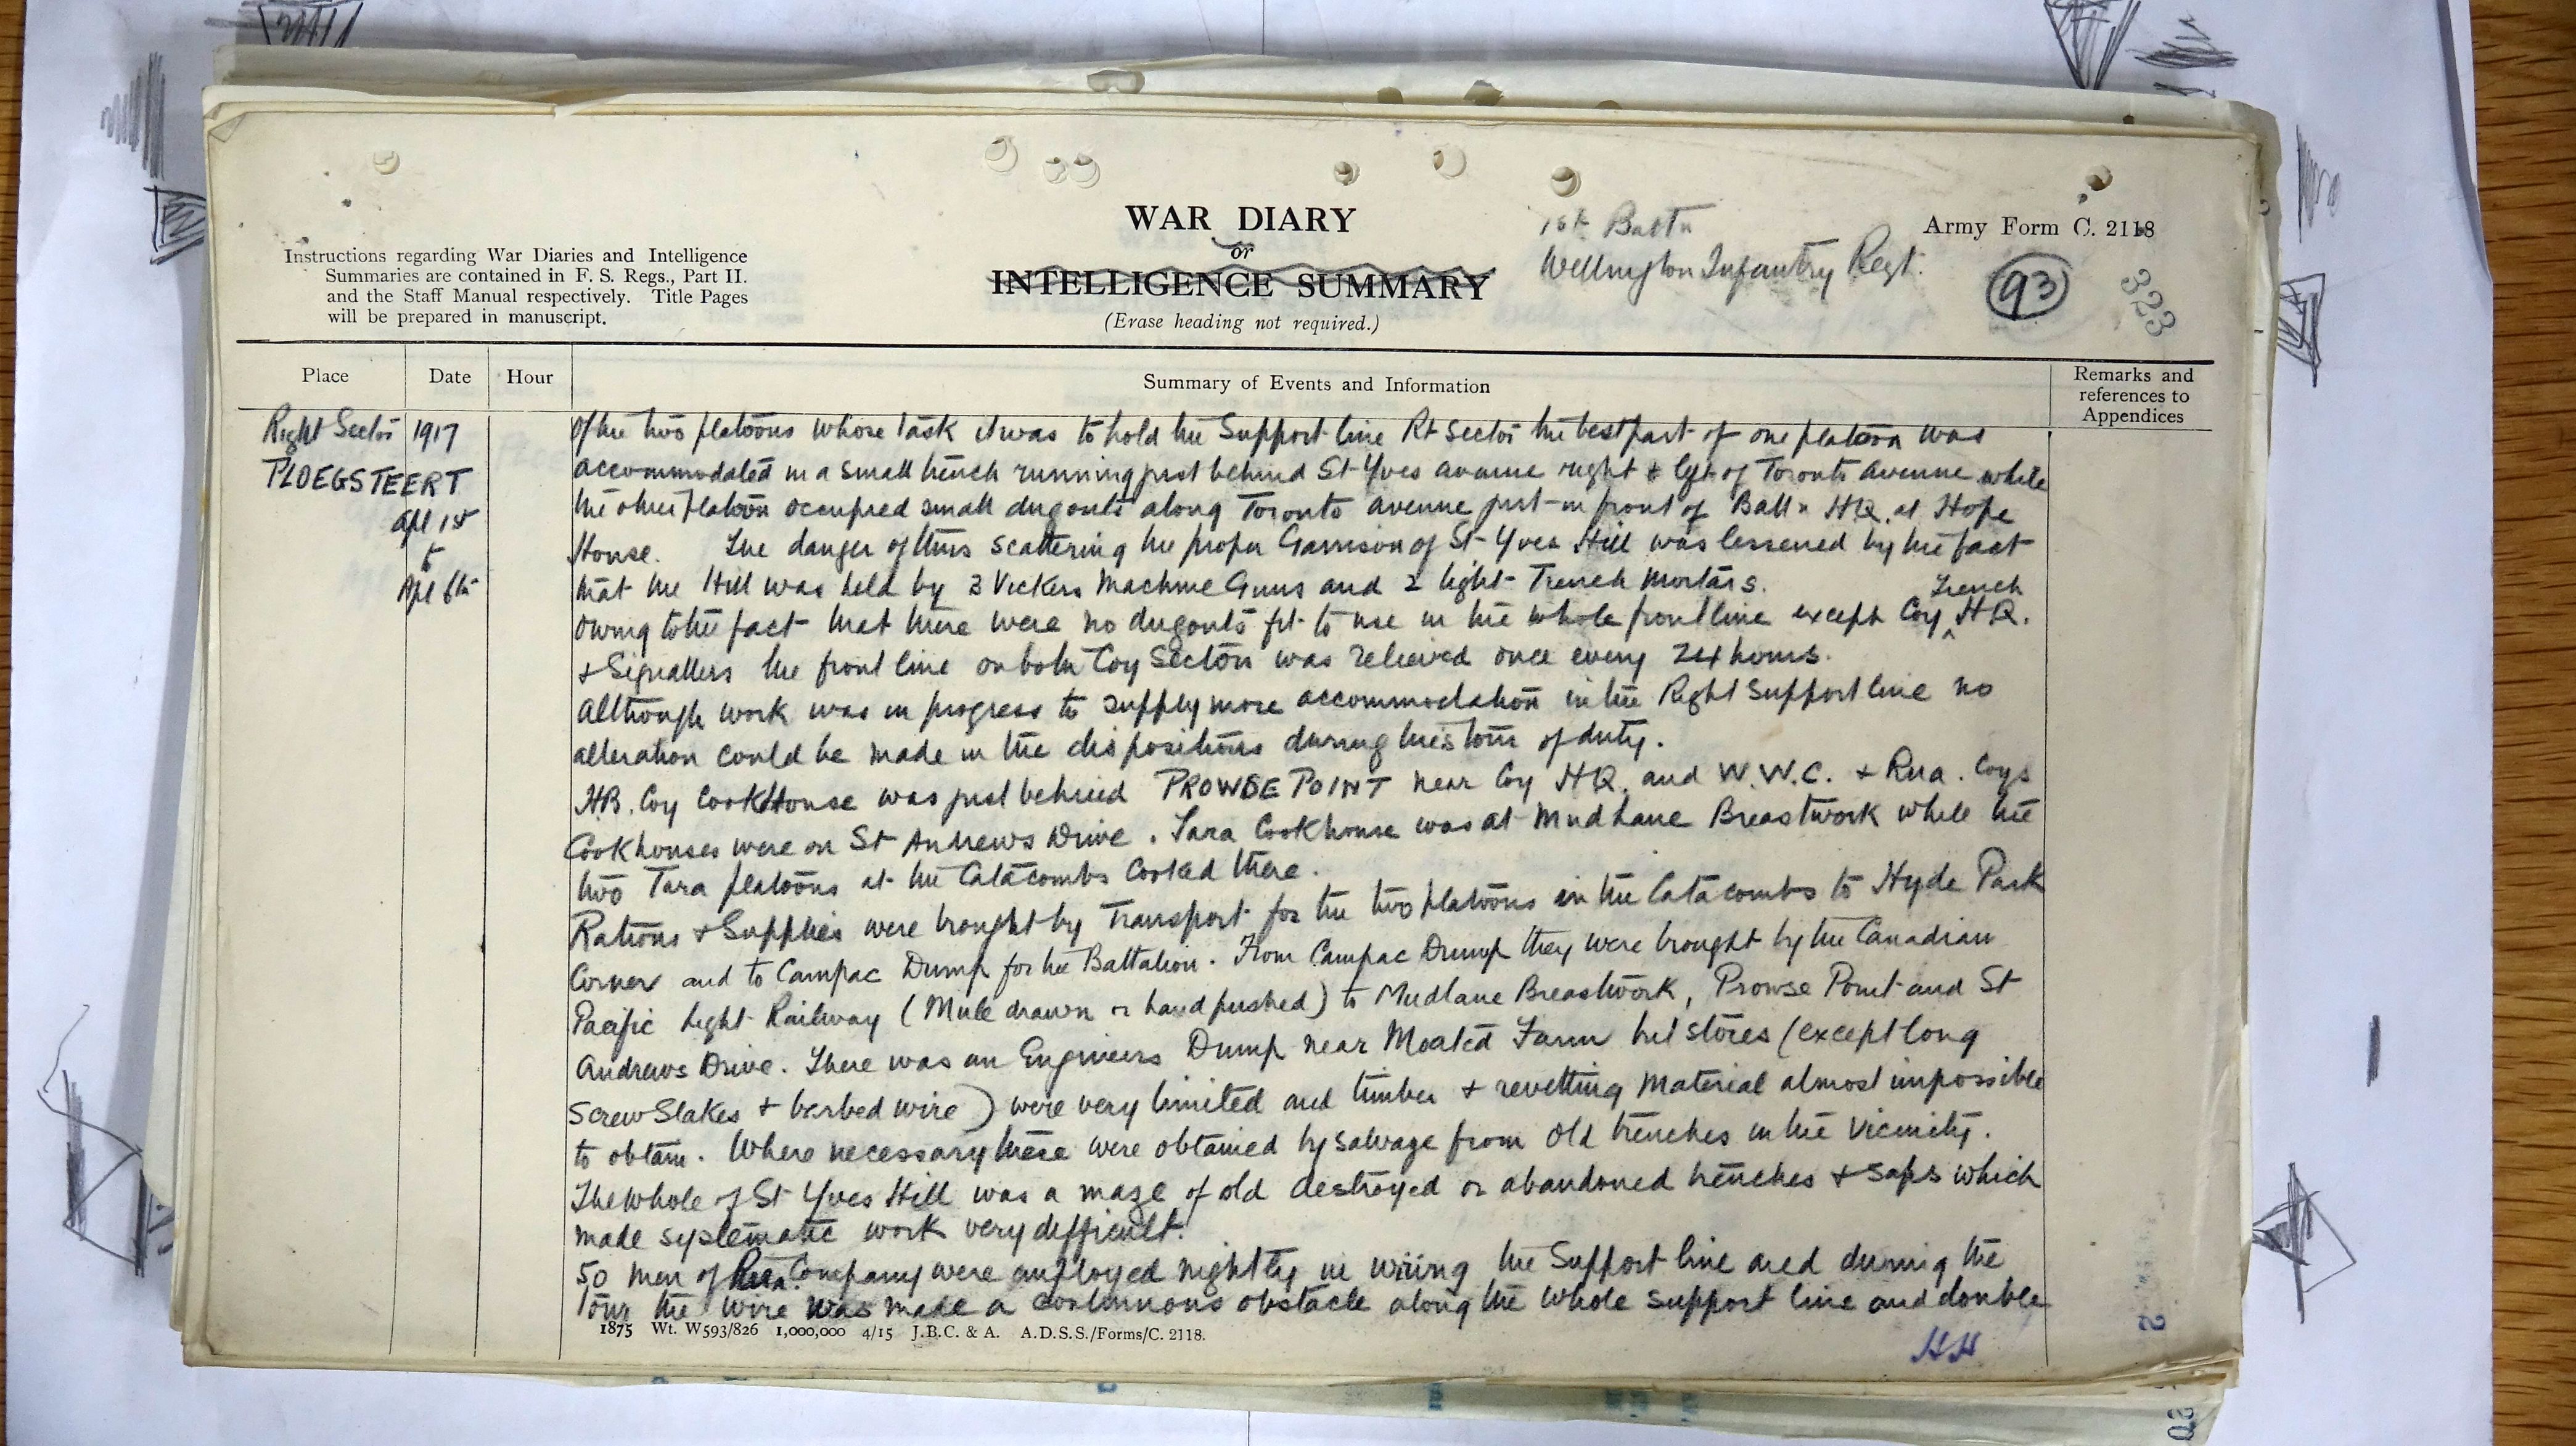 WAR DIARY
or
INTELLIGENCE SUMMARY
(Erase heading not required.)
Instructions regarding War Diaries and Intelligence
Summaries are contained in F. S. Regs., Part II.
and the Staff Manual respectively. Title Pages
will be prepared in manuscript.
1st Battn
Wellington Infantry Regt.
Army Form C. 2118
93
323
Place Date Hour Summary of Events and Information Remarks and references to Appendices
Right Sector 1917
PLOEGSTEERT
Apl 1st
to
Apl 6th
Of the two platoons whose task it was to hold the Support line Rt Sector the best part of one platoon was
accommodated in a small trench running just behind St Yves avenue right & left of Toronto Avenue while
the other platoon occupied small dugouts along Toronto avenue just in front of Battn HQ. at Hope
House. The danger of thus scattering the proper Garrison of St Yves Hill was lessened by the fact
that the Hill was held by 3 Vickers Machine Guns and 2 light Trench Mortars.
Owing to the fact that there were no dugouts fit to use in the whole front line except Coy Trench HQ.
& Signallers the front line on both Coy Sectors was relieved once every 24 hours.
Although work was in progress to supply more accommodation in the Right Support line no
alteration could be made in the dispositions during this tour of duty.
H.B. Coy CookHouse was just behind PROWSE POINT near Coy HQ. and W.W.C. & Rua. Coys
Cookhouses were on St Andrews Drive. Tara Cookhouse was at Mudlane Breastwork while the
two Tara platoons at the Catacombs Cooked there.
Rations & Supplies were brought by Transport for the two platoons in the Catacombs to Hyde Park
Corner and to Campac Dump for the Battalion. From Campac Dump they were brought by the Canadian
Pacific light Railway (Mule drawn or hand pushed) to Mudlane Breastwork, Prowse Point and St
Andrews Drive. There was an Engineers Dump near Moated Farm but stores (except long
Screw Stakes & barbed wire) were very limited and timber & revetting Material almost impossible
to obtain. Where necessary these were obtained by salvage from old trenches in the vicinity.
The whole of St Yves Hill was a maze of old destroyed or abandoned trenches & saps which
made systematic work very difficult.
50 men of Rua. Company were employed nightly in wiring the Support line and during the
tour the wire was made a continuous obstacle along the whole support line and double
1875 Wt. W593/826 1,000,000 4/15 J.B.C. & A. A.D.S.S./Forms/C. 2118.
HH